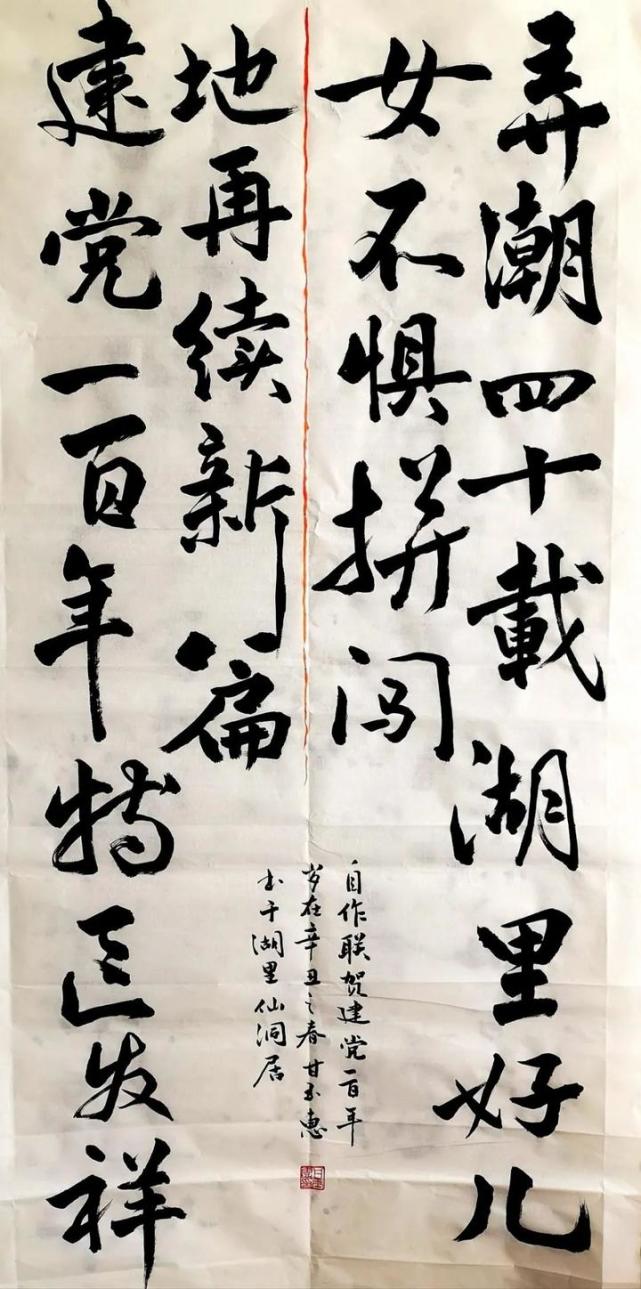 弄潮四十載湖里好儿
女不惧拼闯
建党一百年特区发祥
地再续新篇
自作联贺建党一百年
岁在辛丑之春甘玉惠
书于湖里仙洞居